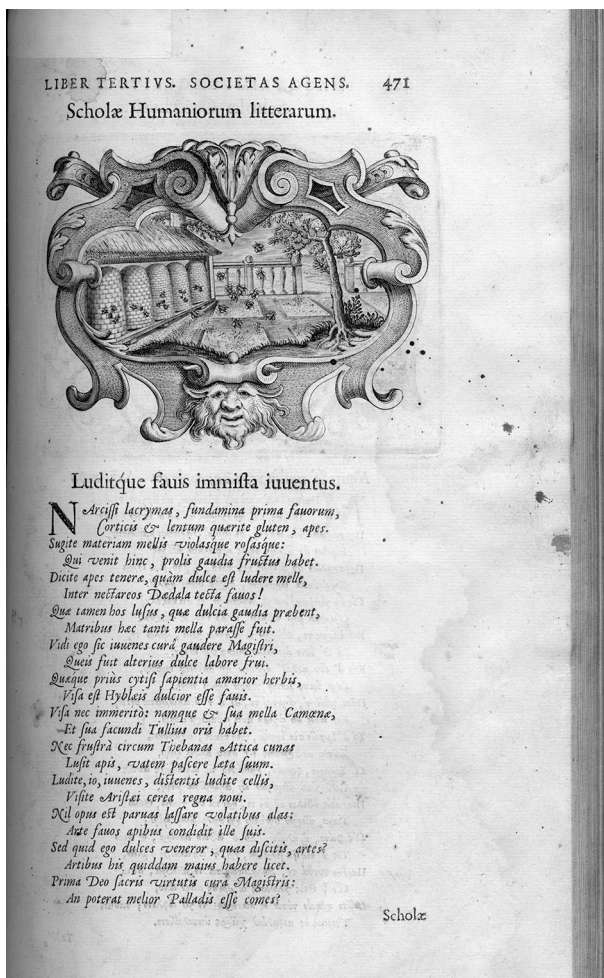 LIBER TERTIVS. SOCIETAS AGENS. 471
Scholæ Humaniorum litterarum.
Luditq́ue fauis immiſta iuuentus.
NArciſſi lacrymas, fundamina prima fauorum,
Corticis & lentum quærite gluten, apes.
Sugite materiam mellis violasque roſasq́ue:
Qui venit hinc, prolis gaudia fructus habet.
Dicite apes teneræ, quàm dulce eſt ludere melle,
Inter nectareos Dædala tecta fauos!
Quæ tamen hos luſus, quæ dulcia gaudia præbent,
Matribus hæc tanti mella paraſſe fuit.
Vidi ego ſic iuuenes curâ gaudere Magiſtri,
Queis fuit alterius dulce labore frui.
Quæque priùs cytiſi ſapientia amarior herbis,
Viſa eſt Hyblæis dulcior eſſe fauis.
Viſa nec immeritò: namque & ſua mella Camœnæ,
Et ſua facundi Tullius oris habet.
Nec fruſtrà circum Thebanas Attica cunas
Luſit apis, vatem paſcere læta ſuum.
Ludite, io, iuuenes, diſtentis ludite cellis,
Viſite Ariſtæi cerea regna noui.
Nil opus eſt paruas laſſare volatibus alas:
Ante fauos apibus condidit ille ſuis.
Sed quid ego dulces veneror, quas diſcitis, artes?
Artibus his quiddam maius habere licet.
Prima Deo ſacris virtutis cura Magiſtris:
An poterat melior Palladis eſſe comes?
Scholæ